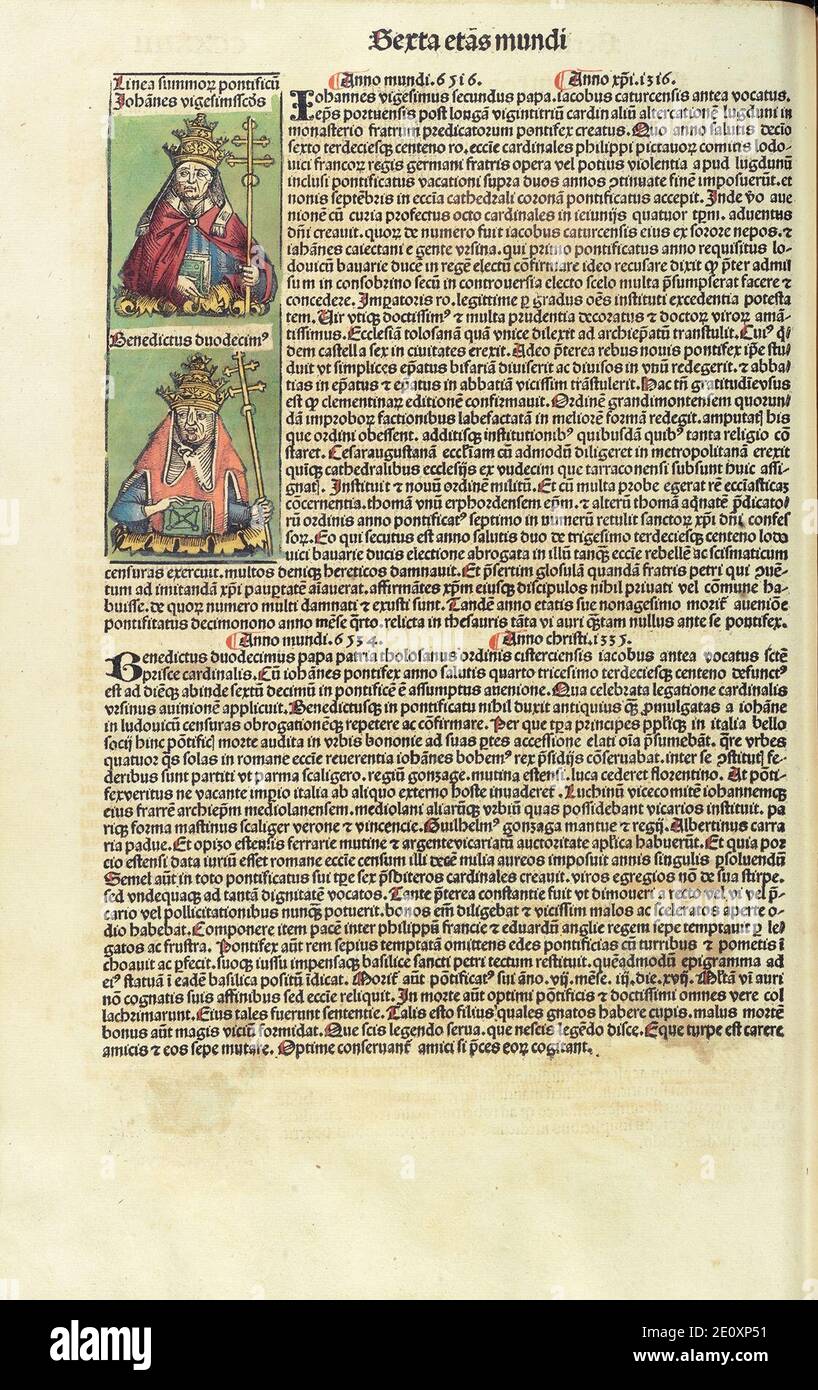 Sexta etas mundi
Linea summoꝝ pontificū
Johānes vigesimsscōs
Anno mundi.6516. Anno xp̄i.1316.
Iohannes vigesimus secundus papa.iacobus caturcensis antea vocatus.
ep̄s portuensis post longā vigintitriū cardinaliū altercationē lugduni in
monasterio fratrum predicatorum pontifex creatus. Quo anno salutis decīo
sexto terdeciesqꝫ centeno ro. eccīe cardinales philippi pictauoꝝ comitis lodo-
uici francoꝝ regis germani fratris opera vel potius violentia apud lugdunū
inclusi pontificatus vacationi supra duos annos ꝯtinuate finē imposuerūt. et
nonis septēbris in eccīa cathedrali coronā pontificatus accepit. Inde v̄o aue
nionē cū curia profectus octo cardinales in ieiunijs quatuor tp̄m. aduentus
dn̄i creauit. quoꝝ de numero fuit iacobus caturcensis eius ex sorore nepos. ⁊
iahānes caiectani e gente vrsina. qui primo pontificatus anno requisitus lo-
douicū bauarie ducē in regē electū cōfirmare ideo recusare dixit ꝙ p̄ter admis
sum in consobrino secū in controuersia electo scelo multa p̄sumpserat facere ⁊
concedere. Imꝑatoris ro. legittime ꝑ gradus oēs instituti excedentia potesta
tem. Uir vtiqꝫ doctissimꝰ ⁊ multa prudentia decoratus ⁊ doctoꝝ viroꝝ amā-
tissimus. Ecclesiā tolosanā quā vnice dilexit ad archiep̄atū transtulit. Cuiꝰ q̇
dem castella sex in ciuitates erexit. Adeo p̄terea rebus nouis pontifex ip̄e stu
duit vt simplices ep̄atus bifariā diuiserit ac diuisos in vnū redegerit. ⁊ abba
tias in ep̄atus ⁊ ep̄atus in abbatiā vicissim trāstulerit. Hac tn̄ gratitudīe vsus
est ꝙ clementinaꝝ editionē confirmauit. Ordinē grandimontensem quorun
dā improboꝝ factionibus labefactatā in meliorē formā redegit. amputatꝭ his
que ordini obessent. additisqꝫ institutionibꝰ quibusdā quibꝰ tanta religio cō
staret. Cesaraugustanā eccl̄iam cū admodū diligeret in metropolitanā erexit
quīqꝫ cathedralibus ecclesijs ex vndecim que tarraconensi subsunt huic assi-
gnatꝭ. Instituit ⁊ nouū ordinē militū. Et cū multa probe egerat rē ecciāsticaꝫ
cōcernentia. thomā vnū erphordensem ep̄m. ⁊ alterū thomā aq̄natē p̄dicato
rū ordinis anno pontificatꝰ septimo in numerū retulit sanctoꝝ xp̄i dn̄i confes
soꝝ. Eo qui secutus est anno salutis duo de trigesimo terdeciesqꝫ centeno lodo
uici bauarie ducis electione abrogata in illū tanqꝫ eccīe rebellē ac scismaticum
censuras exercuit. multos deniqꝫ hereticos damnauit. Et p̄sertim glosulā quandā fratris petri qui ꝯuē-
tum ad imitandā xp̄i pauꝑtatē aīauerat. affirmātes xp̄m eiusqꝫ discipulos nihil priuati vel cōmune ha-
buisse. de quoꝝ numero multi damnati ⁊ exusti sunt. Tandē anno etatis sue nonagesimo moritᷣ auenīoē
pontifitatus decimonono anno mēse q̄rto. relicta in thesauris tāta vi auri qꝫtam nullus ante se pontifex.
Benedictus duodecimꝰ
Anno mundi.6534. Anno christi.1335.
Benedictus duodecimus papa patria tholosanus ordinis cisterciensis iacobus antea vocatus sctē
prisce cardinalis. Cū iohānes pontifex anno salutis quarto tricesimo terdeciesqꝫ centeno defunctꝰ
est ad diēqꝫ abinde sextū decimū in pontificē ē assumptus auenione. Qua celebrata legatione cardinalis
vrsinus auinionē applicuit. Benedictusqꝫ in pontificatu nihil duxit antiquius qꝫ ꝓmulgatas a iohāne
in ludouicū censuras obrogationēqꝫ repetere ac cōfirmare. Per que tꝑa principes pp̄liqꝫ in italia bello
socij hinc pontificꝭ morte audita in vrbis bononie ad suas ꝑtes accessione elati oīa p̄sumebāt. q̄re vrbes
quatuor q̄s solas in romane eccīe reuerentia iohānes bohemꝰ rex p̄sidijs cōseruabat. inter se ꝯstitutꝭ fe-
deribus sunt partiti vt parma scaligero. regiū gonzage. mutina estensi. luca cederet florentino. At pōti-
fex veritus ne vacante imꝑio italia ab aliquo externo hoste inuaderetᷣ. Luchinū vicecomitē iohannemqꝫ
eius frarrē archiep̄m mediolanensem. mediolani aliarūqꝫ vrbiū quas possidebant vicarios instituit. pa
riqꝫ forma mastinus scaliger verone ⁊ vincencie. Guilhelmꝰ gonzaga mantue ⁊ regij. Albertinus carra
ria padue. Et opizo estensis ferrarie mutine ⁊ argente vicariatū auctoritate ap̄lica habuerūt. Et quia por
cio estensi data iuriū esset romane eccīe censum illi decē milia aureos imposuit annis singulis ꝑsoluendū
Semel aūt in toto pontificatus sui tꝑe sex p̄sbiteros cardinales creauit. viros egregios nō de sua stirpe.
sed vndequaqꝫ ad tantā dignitatē vocatos. Tante p̄terea constantie fuit vt dimoueri a recto vel vi vel p̄-
cario vel pollicitationibus nunqꝫ potuerit. bonos em̄ diligebat ⁊ vicissim malos ac sceleratos aperte o-
dio habebat. Componere item pacē inter philippū francie ⁊ eduardū anglie regem sepe temptauit ꝑ le-
gatos ac frustra. Pontifex aūt rem sepius temptatā omittens edes pontificias cū turribus ⁊ pometis ī
choauit ac ꝑfecit. suoqꝫ iussu impensaqꝫ basilice sancti petri tectum restituit. quēadmodū epigramma ad
eiꝰ statuā ī eadē basilica positū īdicat. Moritᷣ aūt pōtificatꝰ sui āno. vij. mēse. iij. die. xvij. Ml̄tā vī auri
nō cognatis suis affinibus sed eccīe reliquit. In morte aūt optimi pōtificis ⁊ doctissimi omnes vere col
lachrimarunt. Eius tales fuerunt sententie. Talis esto filius quales gnatos habere cupis. malus mortē
bonus aūt magis viciū formidat. Que scis legendo serua. que nescis legēdo disce. Eque turpe est carere
amicis ⁊ eos sepe mutare. Optime conseruantᷣ amici si p̄ces eoꝝ cogitant.
alamy
Image ID: 2E0XP51
www.alamy.com